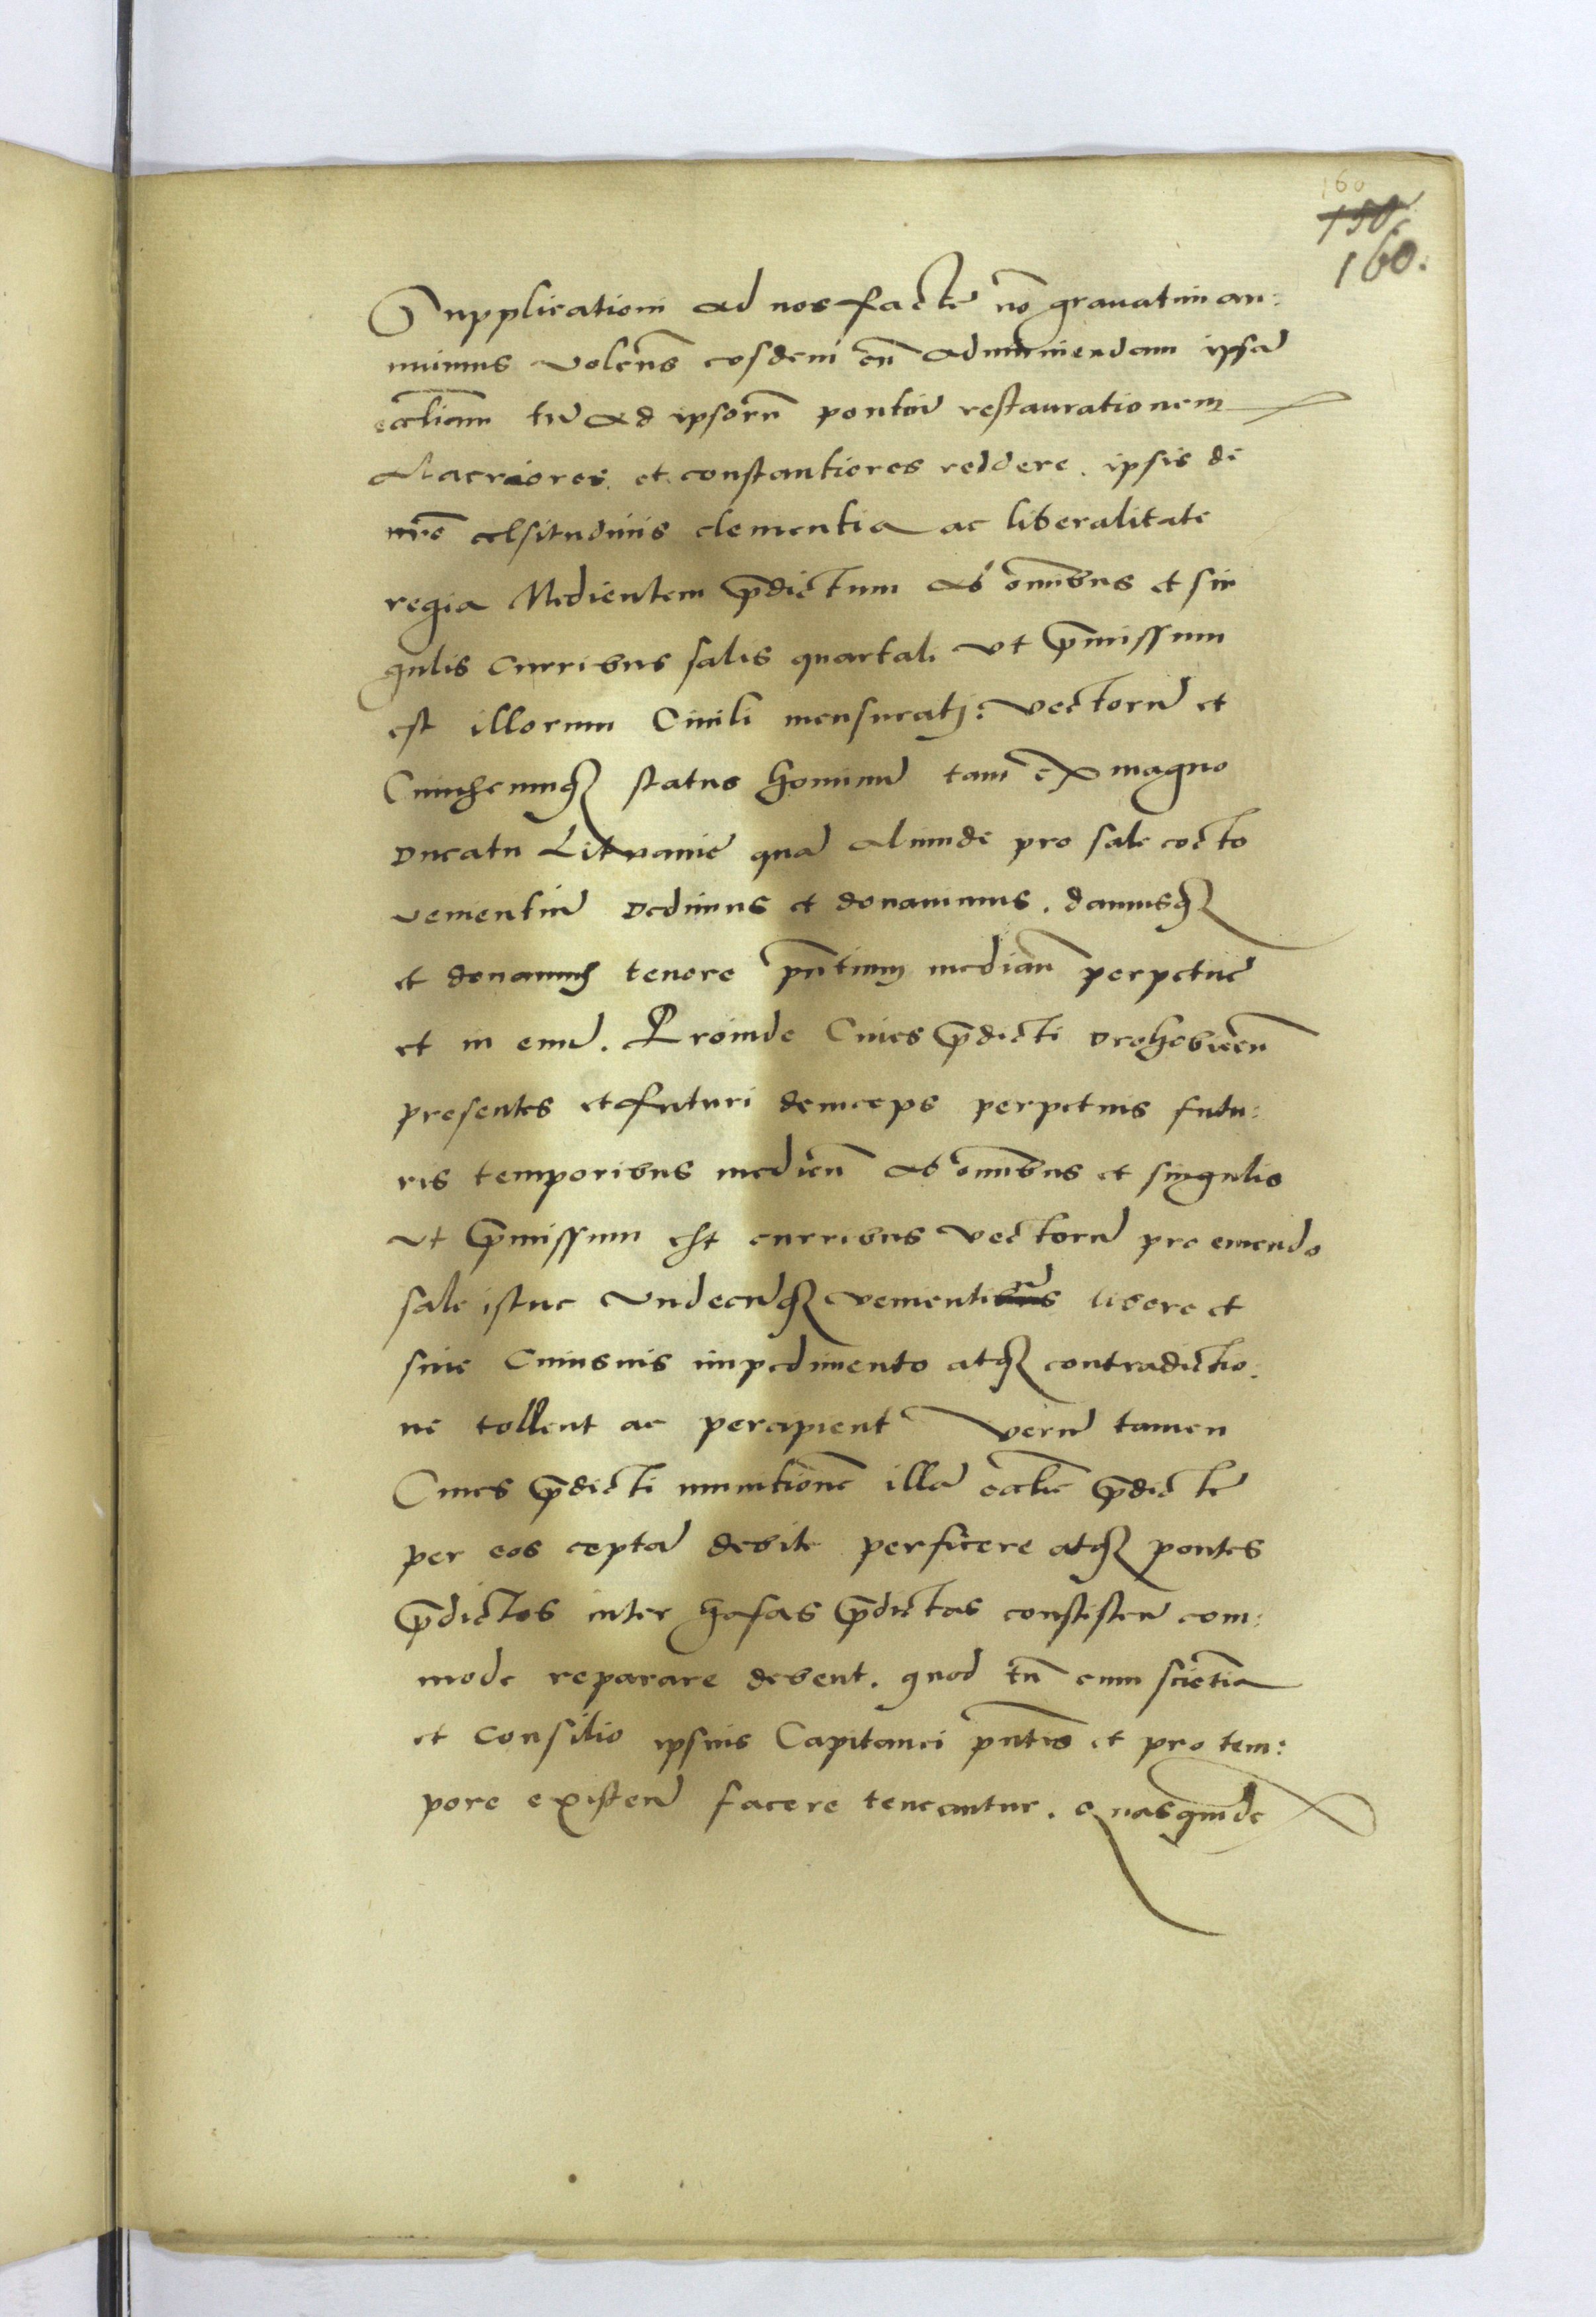 160
150
160.
Supplicationi ad nos factē nō gravatim an:
nuimus volen̄s eosdem cū ad muniendam ipsā
eccl̄iam tū ad ipsorū pontiū restaurationem
Alacriores et constantiores reddere. ipsis de
nr̄e celsitudinis clementia ac liberalitate
regia Medientem p̄dictum ab om̄ibus et sin
gulis Curribus salis quartali vt p̄missum
est illorum Civili mensurati: vectorū et
Cuiuscumq₃ status hominū tam ex magno
Ducatu Lituanie quā aliunde pro sale cocto
venientiū Dedimus et donavimus. damusq₃
et donamus tenore pn̄tium median̄ perpetue
et in evū. Proinde Cives p̄dicti Drohobicen̄
presentes et futuri deinceps perpetuis futu:
ris temporibus medien̄ ab om̄ibus et singulis
vt p̄missum est curribus vectorū pro emendo
sale istuc undecūq₃ venientiūbus libere et
sine Cuiusvis impedimento atq₃ contradictio:
ne tollent ac percipient Verū tamen
Cives p̄dicti munitionē illā eccl̄ie p̄dictē
per eos ceptā debite perficere atq₃ pontes
p̄dictos inter Hasas p̄dictas consisten̄ com:
mode reparare debent. quod tn̄ cum scien̄tia
et Consilio ipsius Capitanei pn̄tis et pro tem:
pore existen̄ facere teneantur. quasquidē